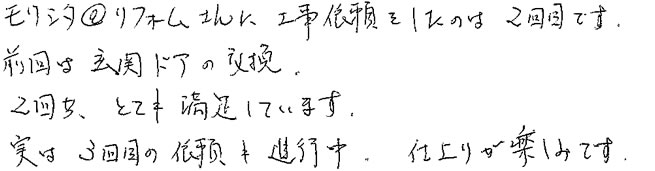 モリシタ@リフォームさんに工事依頼をしたのは2回目です.
前回は玄関ドアの交換.
2回ち、とても満足しています.
実は3回目の依頼も進行中. 仕上りが楽しみです.